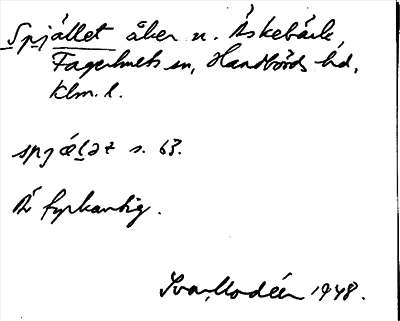 Spjället åker n. Äskebäck,
Fagerhults sn, Handbörds hd,
Klm. l.
spjæ̀lət s. 63.
Är fyrkantig.
Ivar Modéer 1948.